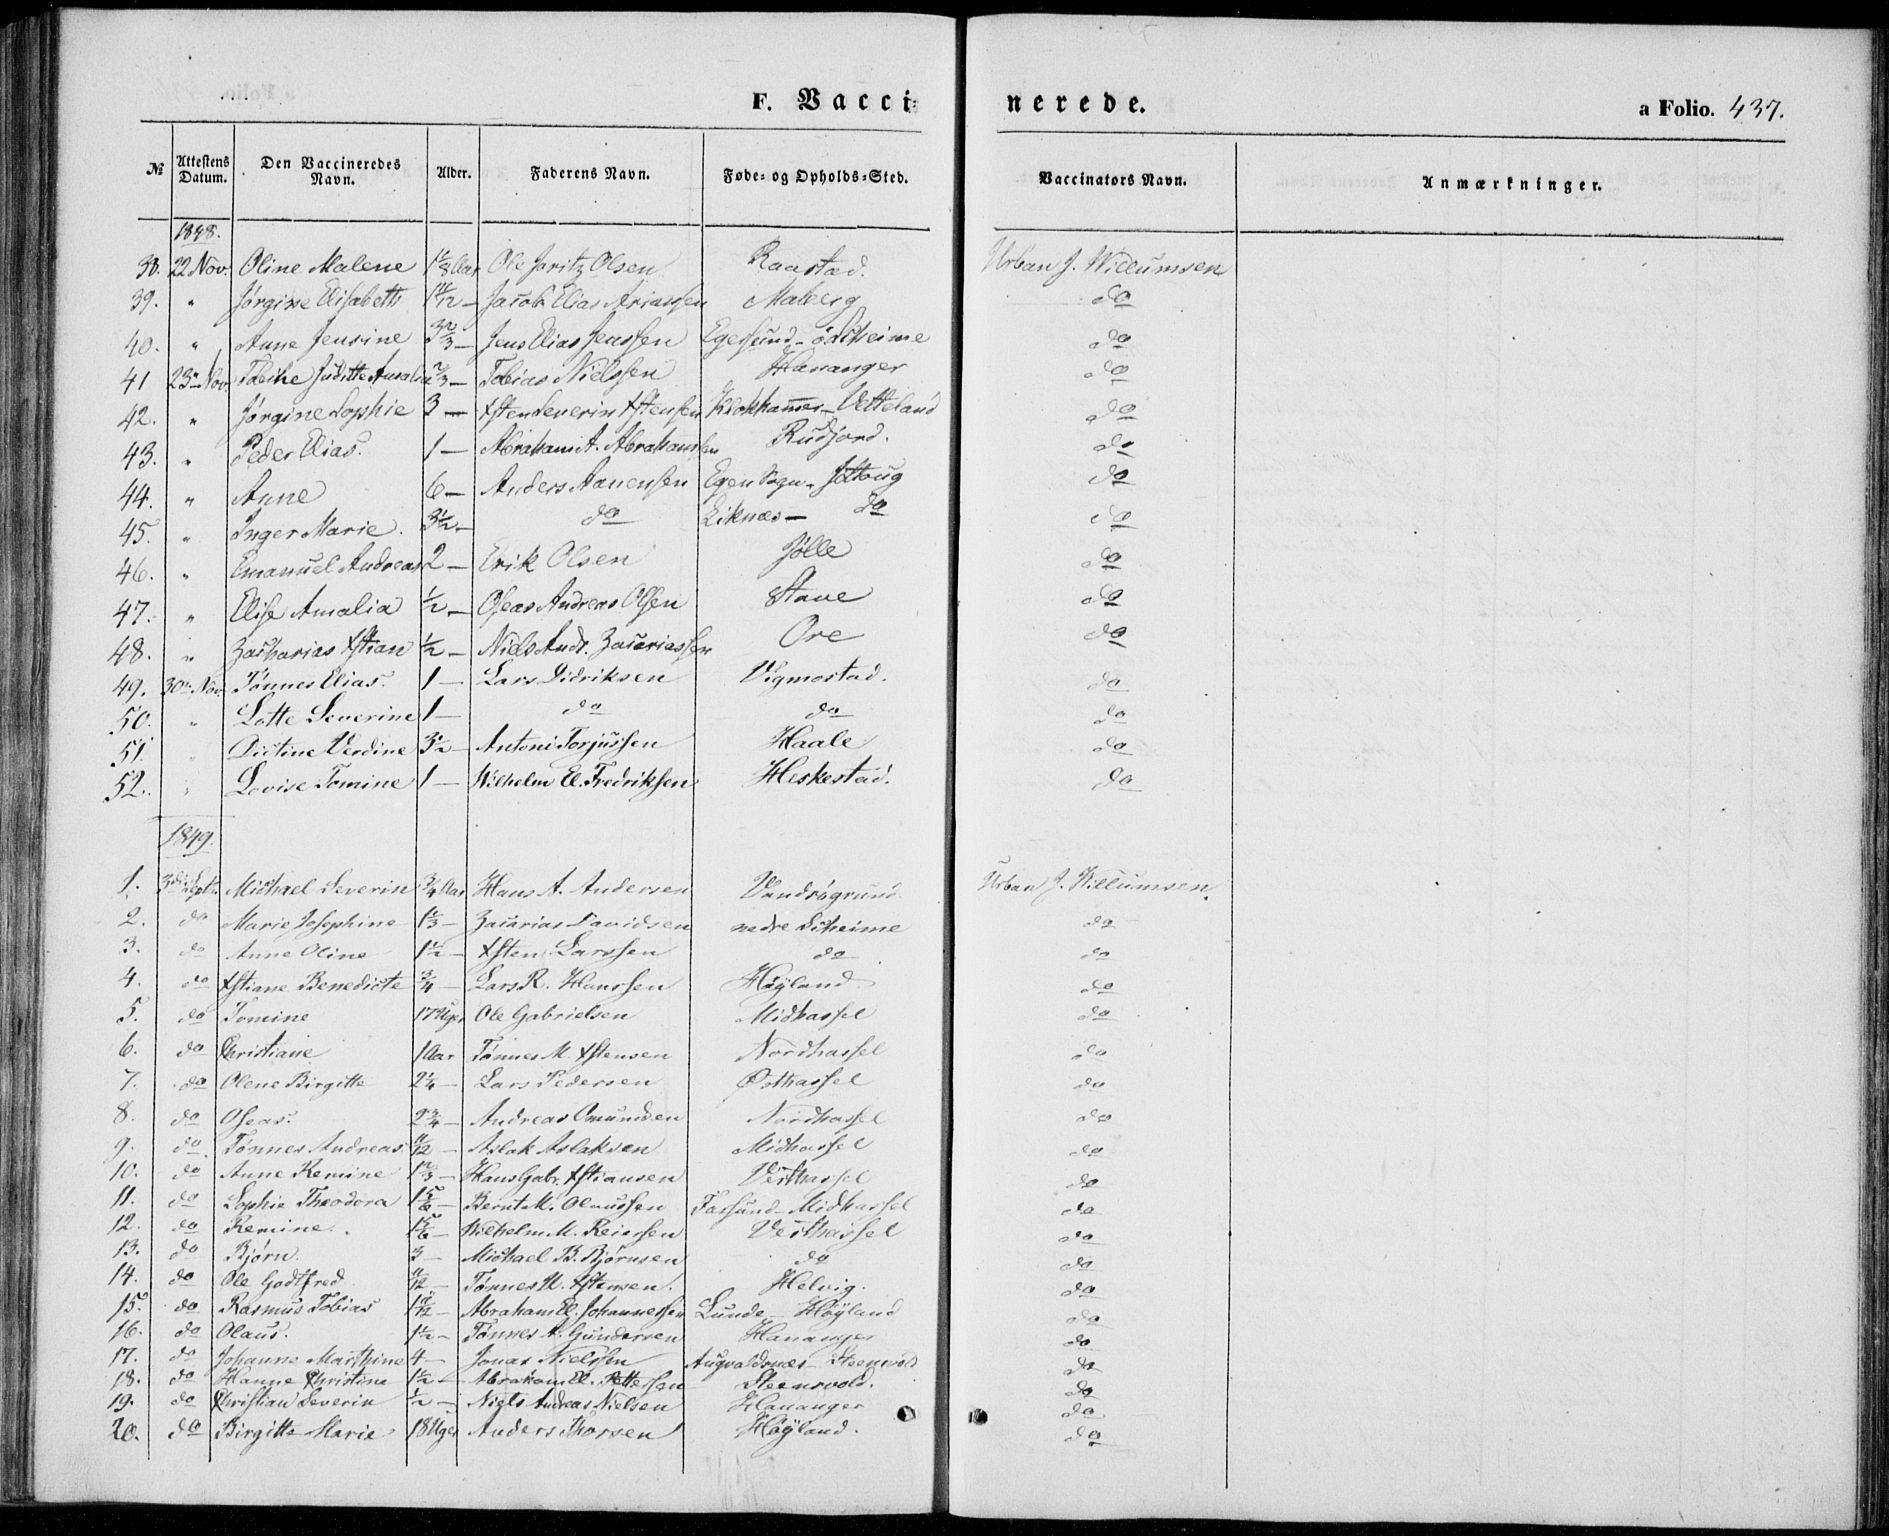 F. Vacci=
nerede.
a Folio. 437.
№ Attestens Datum. Den Vaccineredes Navn. Alder. Faderens Navn. Føde- og Opholds-Sted. Vaccinators Navn. Anmærkninger.
1848.
38. 22 Nov. Oline Malene Aar Ole Olsen Raastad. Urban J. Willumsen
39. " Jørgine Elisabeth 1 1/12 — Jacob Elias Maberg do
40. " Anne Jensine 3 2/3 — Jens Elias Jenssen Egersund – do
41 23 Nov. Juditte Amalia 2/3 — Tobias Nielssen Hananger do
42. " Jørgine Sophie 3 — Xsten Severin Xstensen Klokhammer – Vetteland do
43. " Peder Elias. 1 — Abraham A. Abrahamsen Rudjord. do
44. " Anne 6 — Anders Aanensen Egen Sogn – do
45. " Inger Marie. 3 1/2 — do Eiknæs — do do
46. " Emanuel Andreas 2 — Erik Olsen Jølle do
47. " Elise Amalia 1/2 — Oseas Andreas Olsen Stave do
48. " Zacharias Xstian 1/2 — Niels Andr. Zacariassen Ore do
49. 30 Nov. Tønnes Elias. 1 — Lars Didriksen Vigmostad. do
50. " Lotte Severine 1 — do do do
51. " Dictine Verdine 3 1/2 — Antoni Torjussen Haale do
52. " Lovise Tomine 1 — Wilhelm El. Fredriksen Heskestad. do
1849.
1. 3die Septr. Michael Severin 3/4 Aar Hans A. Andersen Vandsøgrund Urban J. Willumsen.
2. do Marie Josephine 1 1/3 — Zacarias Davidsen nedre do
3. do Anne Oline 1 1/2 — Xsten Larssen do do
4. do Xstiane Benedicte 3/4 — Lars R. Hanssen Høyland do
5. do Tomine 17 Uger Ole Gabrielsen Midhassel do
6. do Christiane 1 Aar Tønnes M. Xstensen Nordhassel do
7. do Olene Birgitte 2 1/4 — Lars Pedersen Østhassel do
8. do Oseas. 2 3/4 — Andreas Omundsen Nordhassel do
9. do Tønnes Andreas. 11/12 — Aslak Aslaksen Midhassel do
10. do Anne Remine 1 2/3 — Hans Gabr. Xstiansen Vesthassel do
11. do Sophie Theodora 1 5/6 — Bernt M. Olaussen Farsund – Midhassel do
12. do Remine. 1 5/6 — Wilhelm M. Reierssen Vesthassel do
13. do Bjørn 3 — Michael B. Bjørnsen do do
14. do Ole Godtfred 11/12 — Tønnes M. Xstensen. Helvig. do
15. do Rasmus Tobias 1 11/12 — Abraham El. Johannessen Lunde – Høyland do
16. do Olaus. 1 1/2 — Tønnes A. Gundersen Hananger do
17. do Johanne Marthine 4 — Jonas Nielssen Augvaldsnæs – Steensvold do
18. do Hanne Christine 1 1/2 — Abraham El. Pettersen Steensvold. do
19. do Christian Severin 1/2 — Niels Andreas Nielsen Hananger do
20. do Birgitte Marie 18 Uger Anders Thorsen Høyland. do